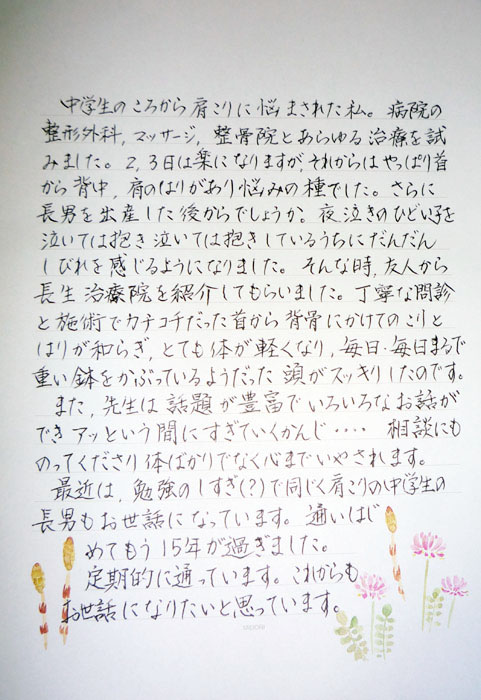 中学生のころから肩こりに悩まされた私。病院の
整形外科，マッサージ，整骨院とあらゆる治療を試
みました。2，3日は楽になりますが，それからはやっぱり首
から背中，肩のはりがあり悩みの種でした。さらに
長男を出産した後からでしょうか。夜泣きのひどい子を
泣いては抱き泣いては抱きしているうちにだんだん
しびれを感じるようになりました。そんな時，友人から
長生治療院を紹介してもらいました。丁寧な問診
と施術でカチコチだった首から背骨にかけてのこりと
はりが和らぎ，とても体が軽くなり，毎日・毎日まるで
重い鉢をかぶっているようだった頭がスッキリしたのです。
また，先生は話題が豊富でいろいろなお話が
できアッという間にすぎていくかんじ・・・・ 相談にも
のってくださり体ばかりでなく心までいやされます。
最近は，勉強のしすぎ(?)で同じく肩こりの中学生の
長男もお世話になっています。通いはじ
めてもう15年が過ぎました。
定期的に通っています。これからも
お世話になりたいと思っています。